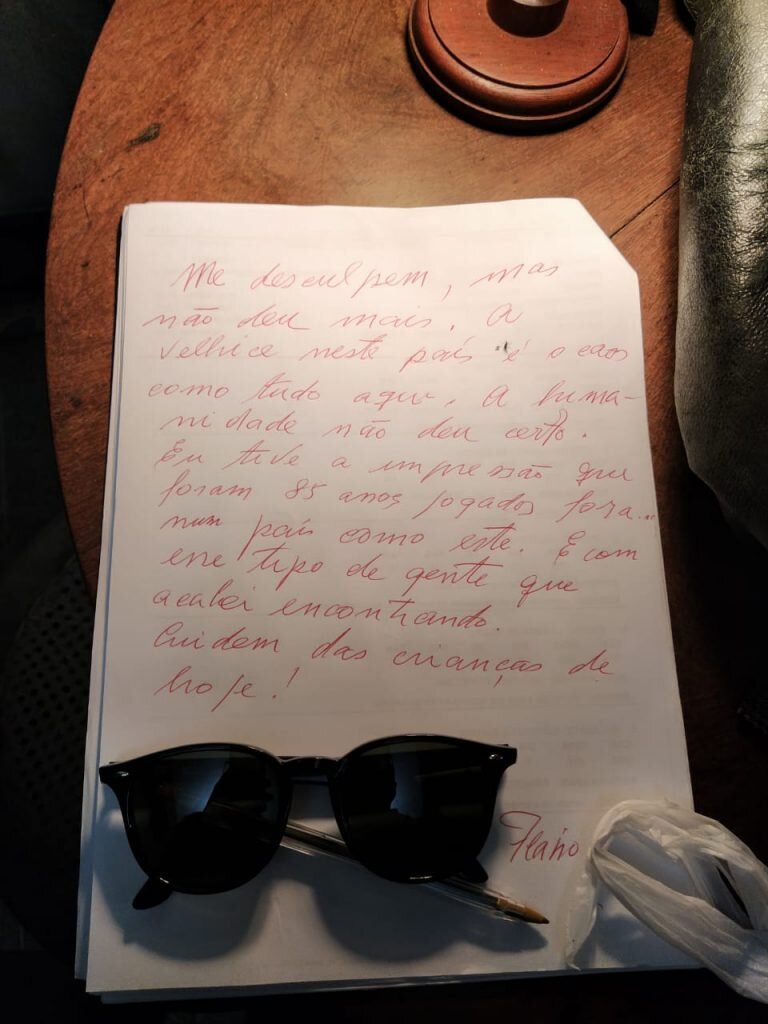 Me desculpem, mas
não deu mais. A
velhice neste país é o caos
como tudo aqui. A huma-
nidade não deu certo.
Eu tive a impressão que
foram 85 anos jogados fora...
num país como este. E com
esse tipo de gente que
acabei encontrando.
Cuidem das crianças de
hoje!
Flavio